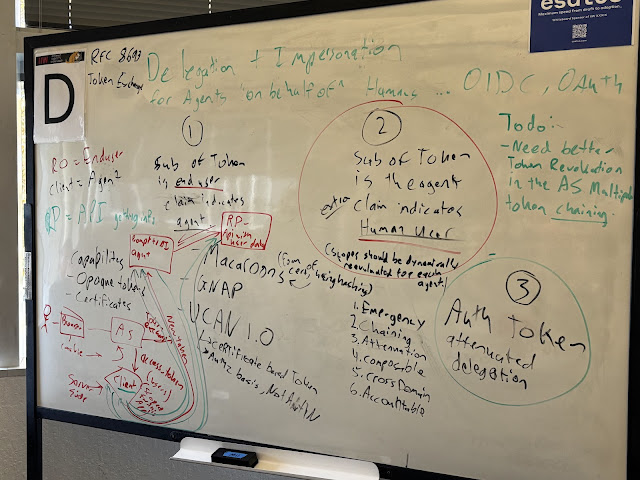 esatus
Maximum speed from draft to adoption.
D
RFC 8693
Token Exchange
Delegation + Impersonation
for Agents "on behalf of" Humans ... OIDC, OAuth
RO = Enduser
Client = Agent
= API
1
Sub of Token
is end user
claim indicates
agent
2
Sub of Token
is the agent
extra
claim indicates
Human User
(scopes should be dynamically
reevaluated for each
agent)
Todo:
- Need better
Token Revocation
in the AS. Multiple
token chaining.
3
Auth Token
attenuated
delegation
RP-
API with
user data
agent
Capabilities
- Opaque tokens
- Certificates
Macaroons
(form of
GNAP
UCAN 1.0
certificate based Token
Authz basis, Not AuthN
1. Emergency
2. Chaining
3. Attenuation
4. Composable
5. Cross Domain
6. Accountable
Browser
AS
Token
Exchange
New token
access token
Cookie
Server
Side
Client